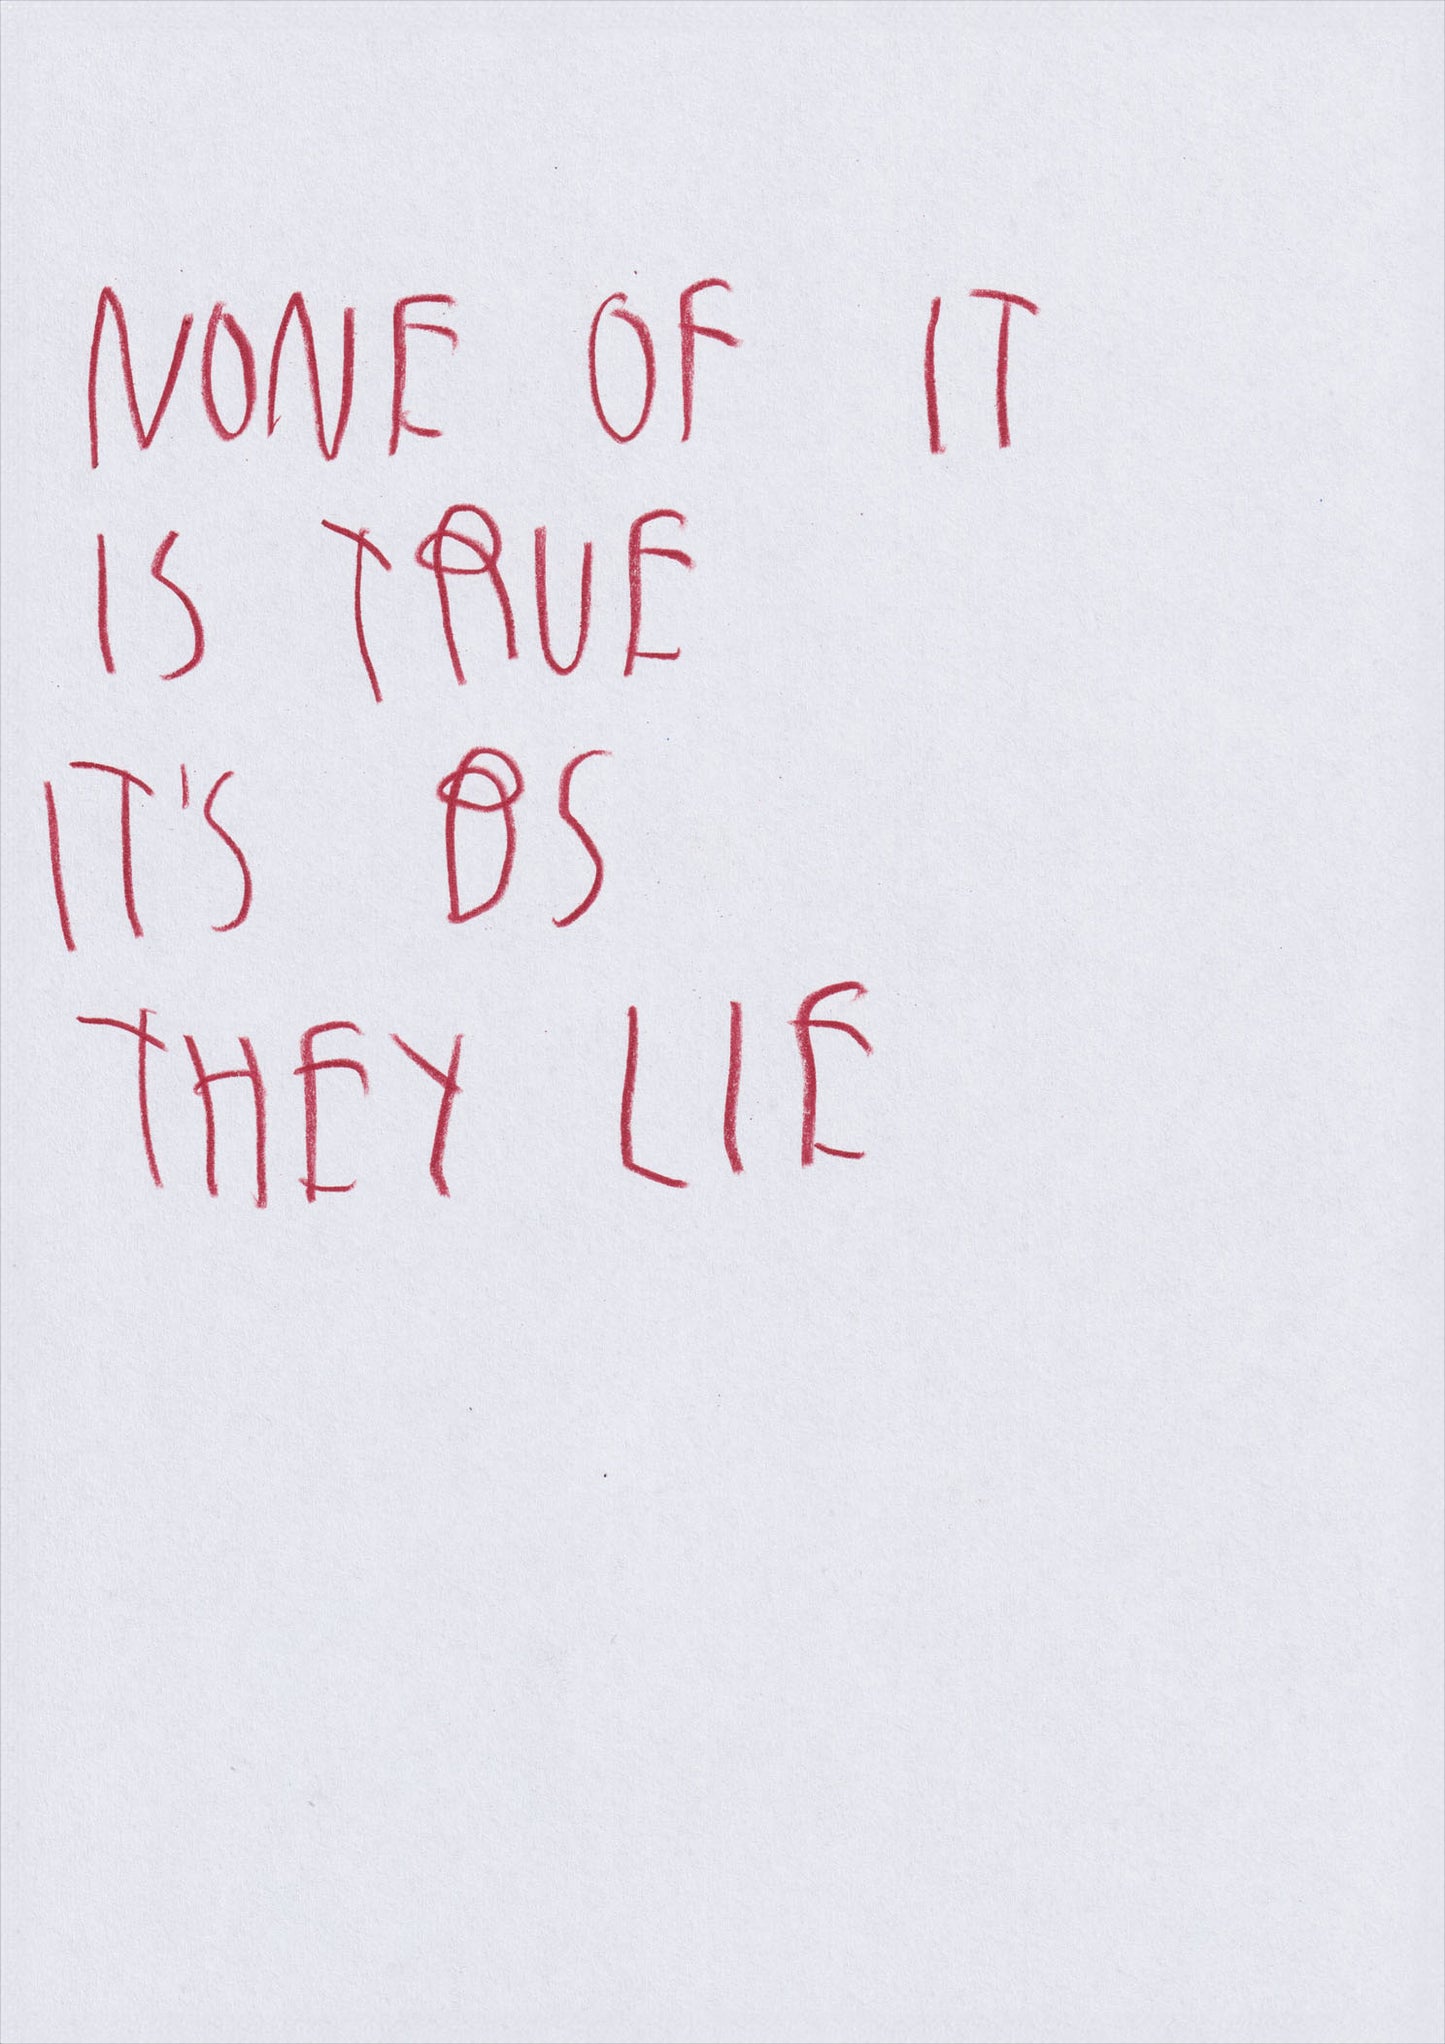 NONE OF IT
IS TRUE
IT'S BS
THEY LIE